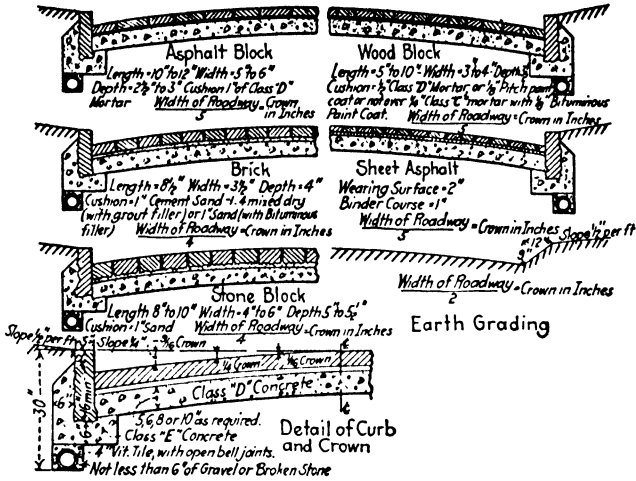 Asphalt Block
Length=10"to12" Width=5"to 6"
Depth=2½"to3" Cushion 1" of Class "D"
Mortar Width of Roadway = Crown
5 in Inches
Wood Block
Length=5"to 10" Width=3"to4"
Cushion=½"Class "D" Mortar or ⅛" Pitch paint
coat or not over ¼" Class "C" mortar with ⅛" Bituminous
Paint Coat. Width of Roadway = Crown in Inches
5
Brick
Length=8½" Width=3½" Depth=4"
Cushion=1" Cement Sand-1:4 mixed dry
(with grout filler) or 1" Sand (with Bituminous
filler) Width of Roadway = Crown in Inches
4
Sheet Asphalt
Wearing Surface=2"
Binder Course=1"
Width of Roadway = Crown in Inches
5
Stone Block
Length 8"to 10" Width=4"to 6" Depth 5"to 5½"
Cushion=1" Sand Width of Roadway = Crown in Inches
4
12" Slope ½" per ft
9"
Width of Roadway = Crown in Inches
2
Earth Grading
Slope ½" per ft 5" Slope ¼" 9/16 Crown
¼ Crown 1/16 Crown
Class "D" Concrete
30"
6"
5,6,8 or 10" as required.
Class "E" Concrete
4" Vit. Tile, with open bell joints.
Not less than 6" of Gravel or Broken Stone
Detail of Curb
and Crown